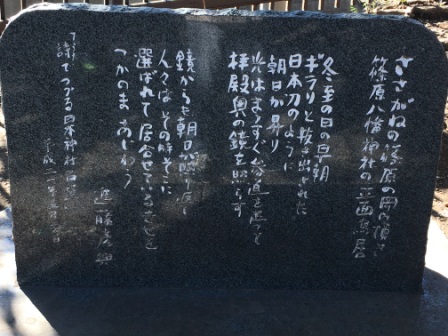 ささがねの篠原の岡の頂き
篠原八幡神社の正面鳥居
冬至の日の早朝
ギラりと抜き出された
日本刀のように
朝日が昇り
光はまっすぐ参道を走って
拝殿奥の鏡を照らす
鏡からも朝日照り返し
人々はその時そこに
選ばれて居合せている幸せを
つかのま あじわう
進藤
詩でつづる日本神社
平成二